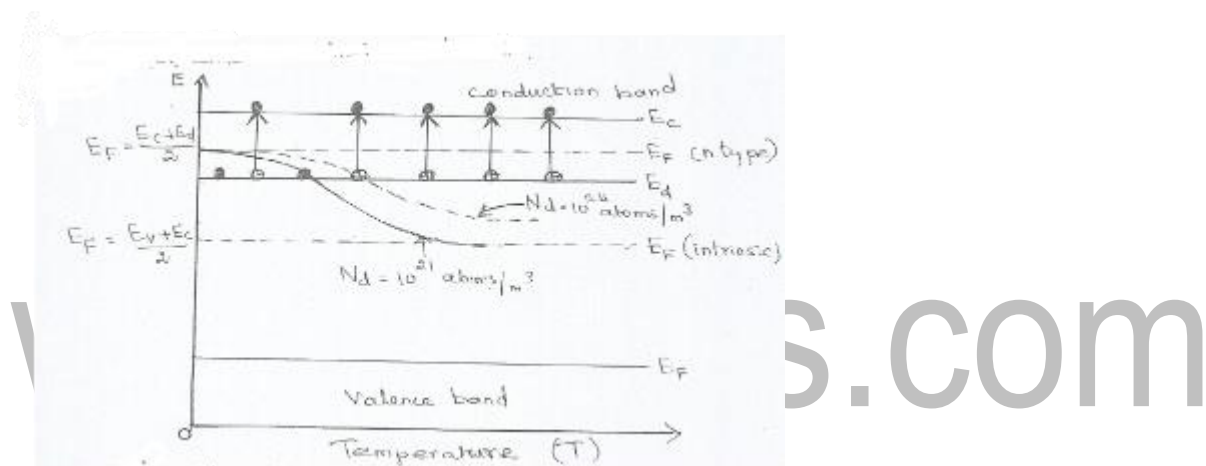 E
conduction band
E_c
E_F = E_c+E_d/2
E_F (n type)
E_d
N_d = 10^24 atoms/m^3
E_F = E_v+E_c/2
E_F (intrinsic)
N_d = 10^21 atoms/m^3
E_F
Valence band
O
Temperature (T)
s.com